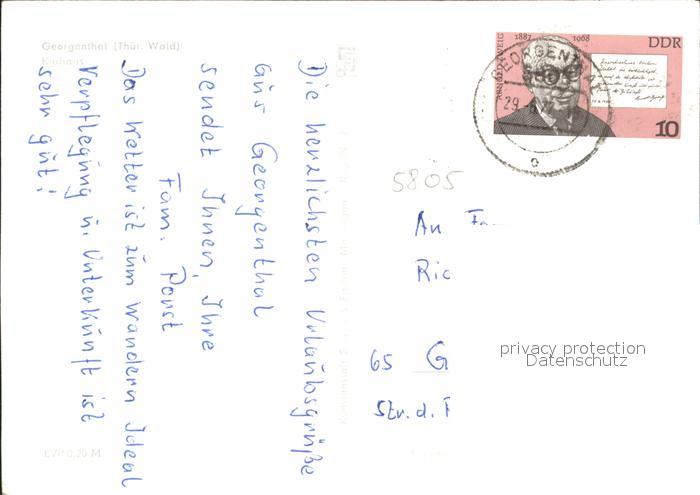 Georgenthal (Thür. Wald)
Kurhaus
Die herzlichsten Urlaubsgrüße
aus Georgenthal
sendet Ihnen, Ihre
Fam. Porst
Das Wetter ist zum Wandern Ideal
Verpflegung u. Unterkunft ist
sehr gut!
EVP 0,20 M
ARNOLD ZWEIG
1887 1968
DDR
10
GEORGENTH
29
5805
An Fa
Ric
65 G
Str. d. F
privacy protection
Datenschutz